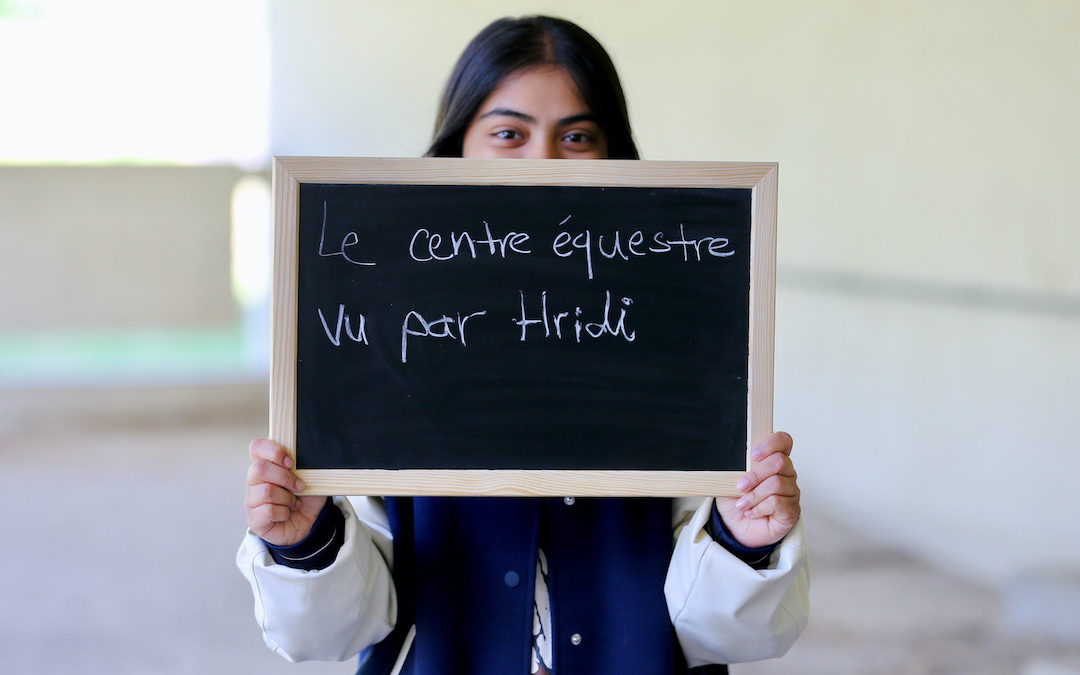 Le centre équestre
vu par Hridi